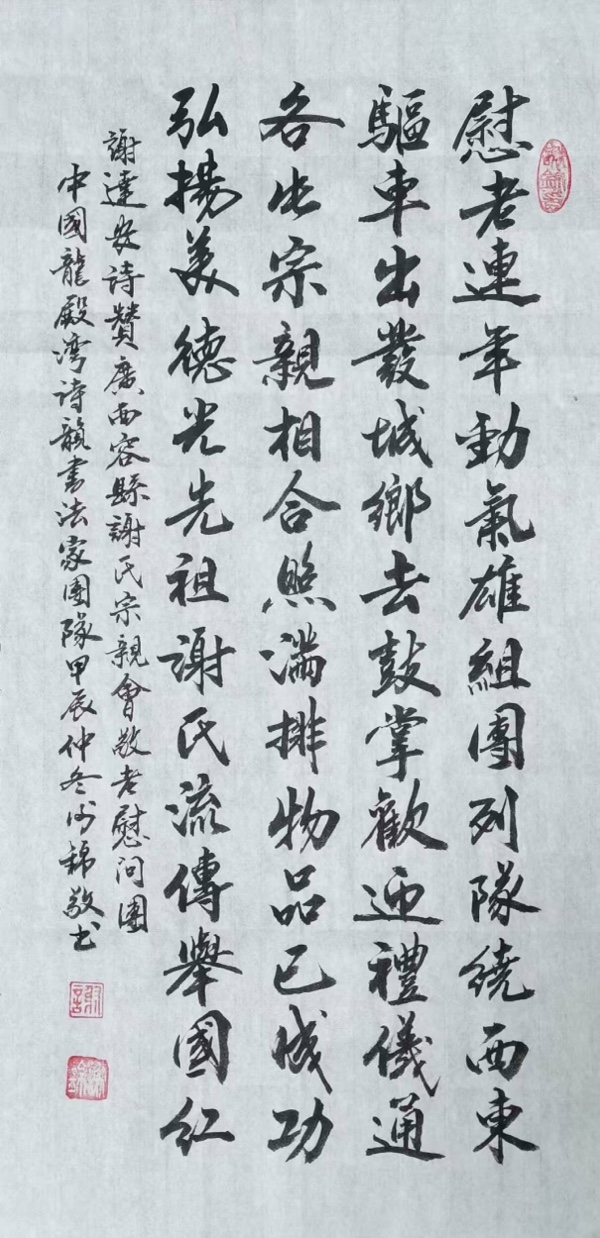 慰老連年動氣雄組團列隊繞西東
驅車出發城鄉去鼓掌歡迎禮儀通
各出宗親相合照滿排物品已成功
弘揚美德光先祖謝氏流傳舉國紅
謝達安詩贊廣西容縣謝氏宗親會敬老慰问團
中國龍殿灣詩韻書法家團隊甲辰仲冬錦敬书